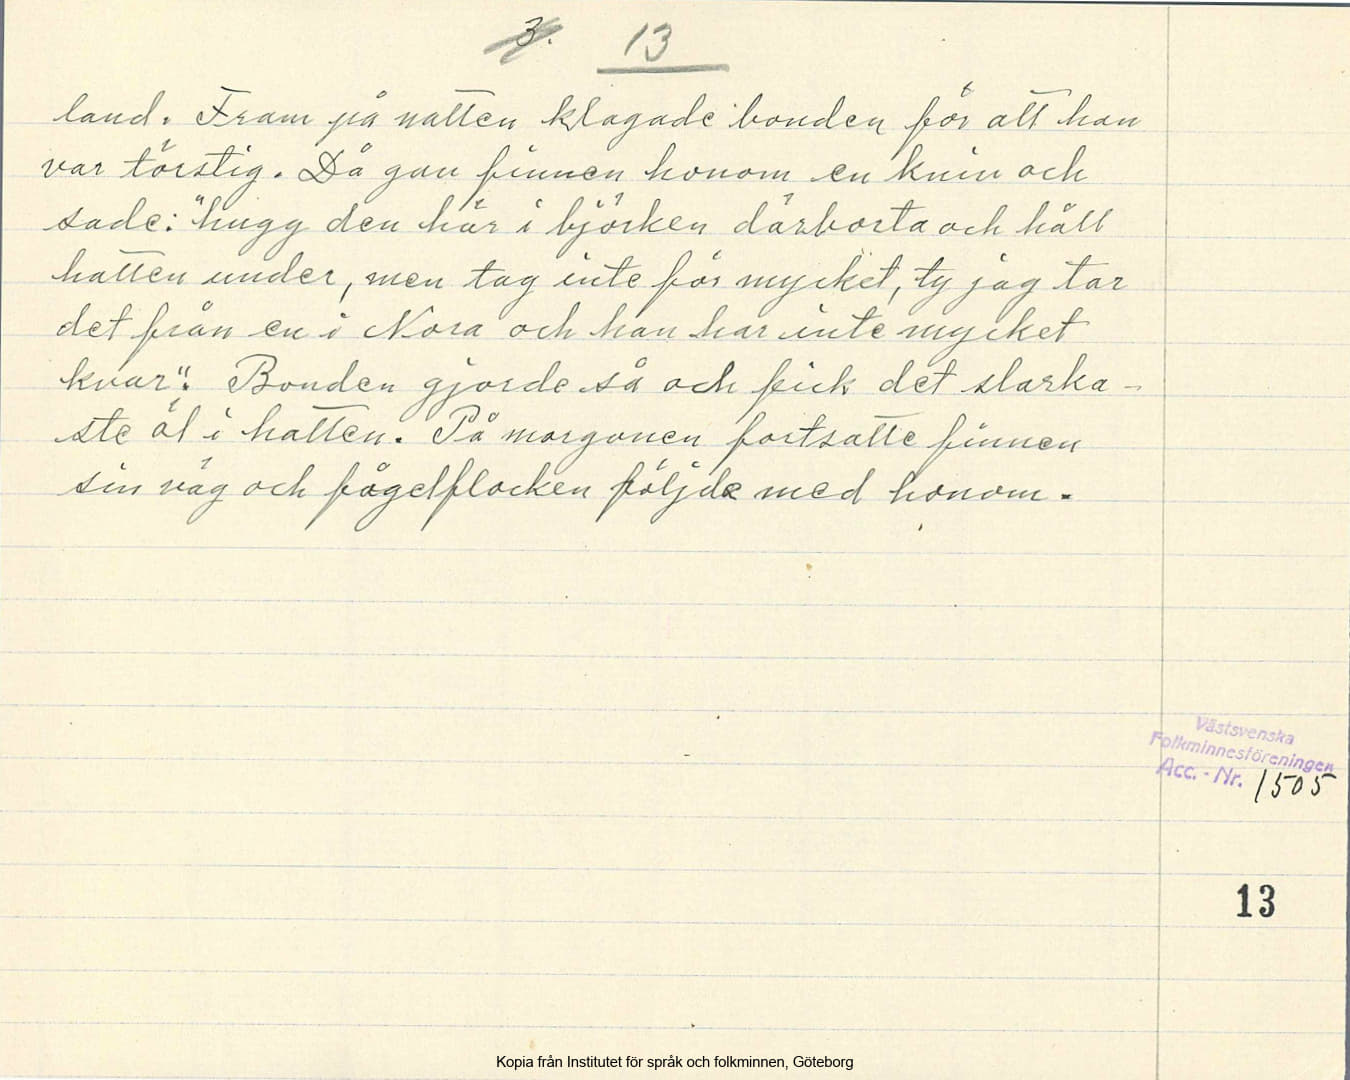 3. 13
land. Fram på natten klagade bonden för att han
var törstig. Då gav finnen honom en kniv och
sade: "hugg den här i björken därborta och håll
hatten under, men tag inte för mycket, ty jag tar
det från en i Nora och han har inte mycket
kvar". Bonden gjorde så och fick det starka-
ste öl i hatten. På morgonen fortsatte finnen
sin väg och fågelflocken följde med honom.
Västsvenska
Folkminnesföreningen
Acc. - Nr. 1505
13
Kopia från Institutet för språk och folkminnen, Göteborg